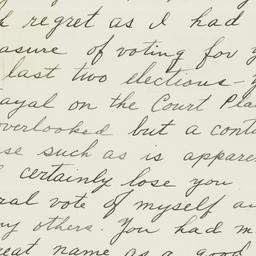 regret as I had
asure of voting for y
last two elections-
ayal on the Court Pla
verlooked but a cont
se such as is appare
certainly lose you
ral vote of myself a
ny others. You had m
reat name as a good